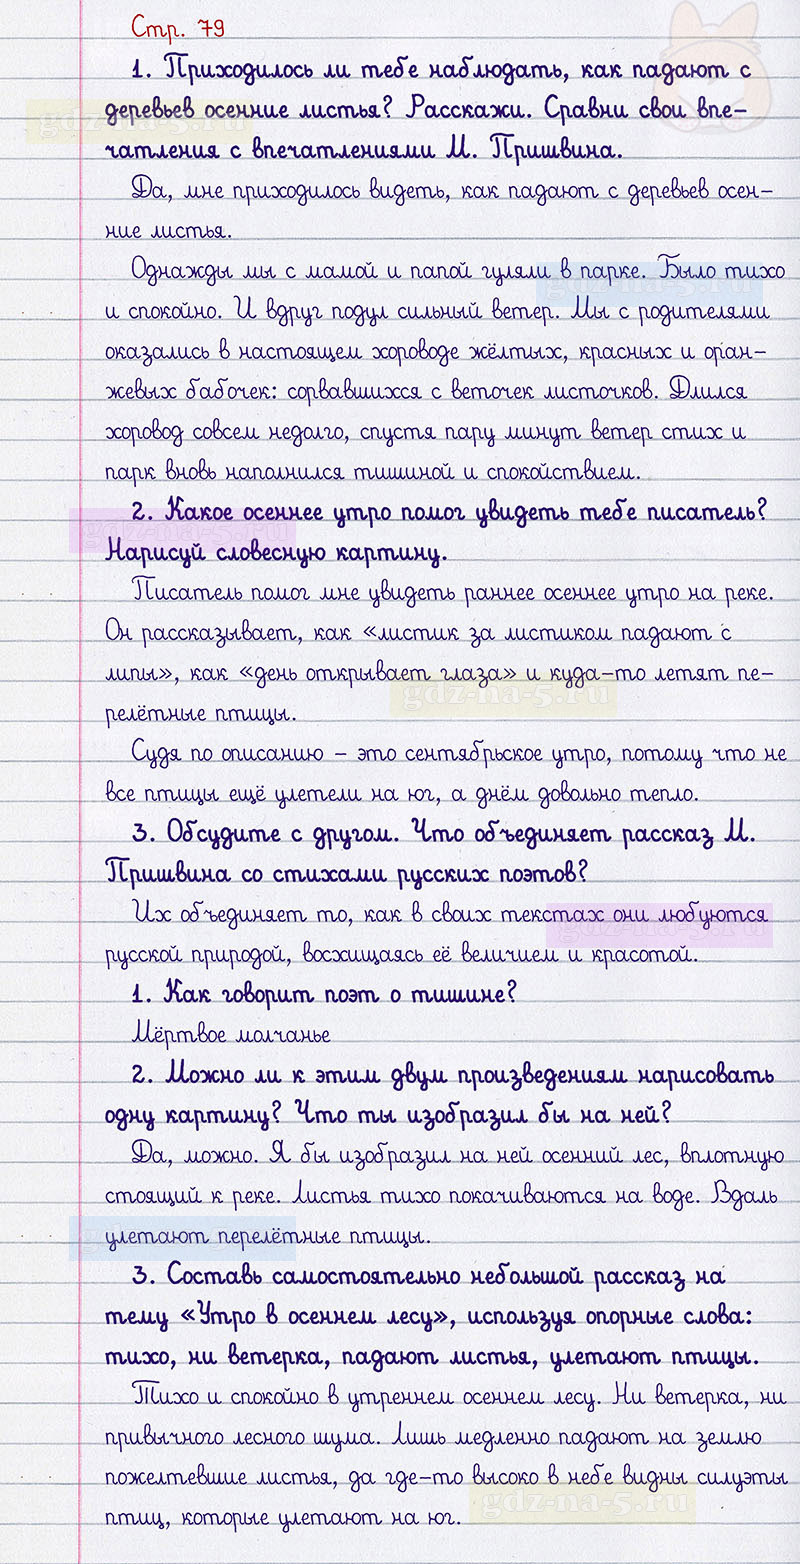 Стр. 79
1. Приходилось ли тебе наблюдать, как падают с
деревьев осенние листья? Расскажи. Сравни свои впе-
чатления с впечатлениями М. Пришвина.
gdz-na-5.ru
Да, мне приходилось видеть, как падают с деревьев осен-
ние листья.
Однажды мы с мамой и папой гуляли в парке. Было тихо
gdz-na-5.ru
и спокойно. И вдруг подул сильный ветер. Мы с родителями
оказались в настоящем хороводе жёлтых, красных и оран-
жевых бабочек: сорвавшихся с веточек листочков. Длился
хоровод совсем недолго, спустя пару минут ветер стих и
парк вновь наполнился тишиной и спокойствием.
2. Какое осеннее утро помог увидеть тебе писатель?
gdz-na-5.ru
Нарисуй словесную картину.
Писатель помог мне увидеть раннее осеннее утро на реке.
Он рассказывает, как «листик за листиком падают с
липы», как «день открывает глаза» и куда-то летят пе-
gdz-na-5.ru
релётные птицы.
Судя по описанию – это сентябрьское утро, потому что не
все птицы ещё улетели на юг, а днём довольно тепло.
3. Обсудите с другом. Что объединяет рассказ М.
Пришвина со стихами русских поэтов?
Их объединяет то, как в своих текстах они любуются
gdz-na-5.ru
русской природой, восхищаясь её величием и красотой.
1. Как говорит поэт о тишине?
Мёртвое молчанье
2. Можно ли к этим двум произведениям нарисовать
одну картину? Что ты изобразил бы на ней?
Да, можно. Я бы изобразил на ней осенний лес, вплотную
стоящий к реке. Листья тихо покачиваются на воде. Вдаль
улетают перелётные птицы.
gdz-na-5.ru
3. Составь самостоятельно небольшой рассказ на
тему «Утро в осеннем лесу», используя опорные слова:
тихо, ни ветерка, падают листья, улетают птицы.
Тихо и спокойно в утреннем осеннем лесу. Ни ветерка, ни
привычного лесного шума. Лишь медленно падают на землю
пожелтевшие листья, да где-то высоко в небе видны силуэты
птиц, которые улетают на юг.
gdz-na-5.ru